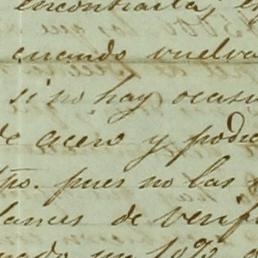 encontrarla, e
cuando vuelva
si no hay ocasi
de acero y podía
tro. pues no las
lances de verif
un 10%